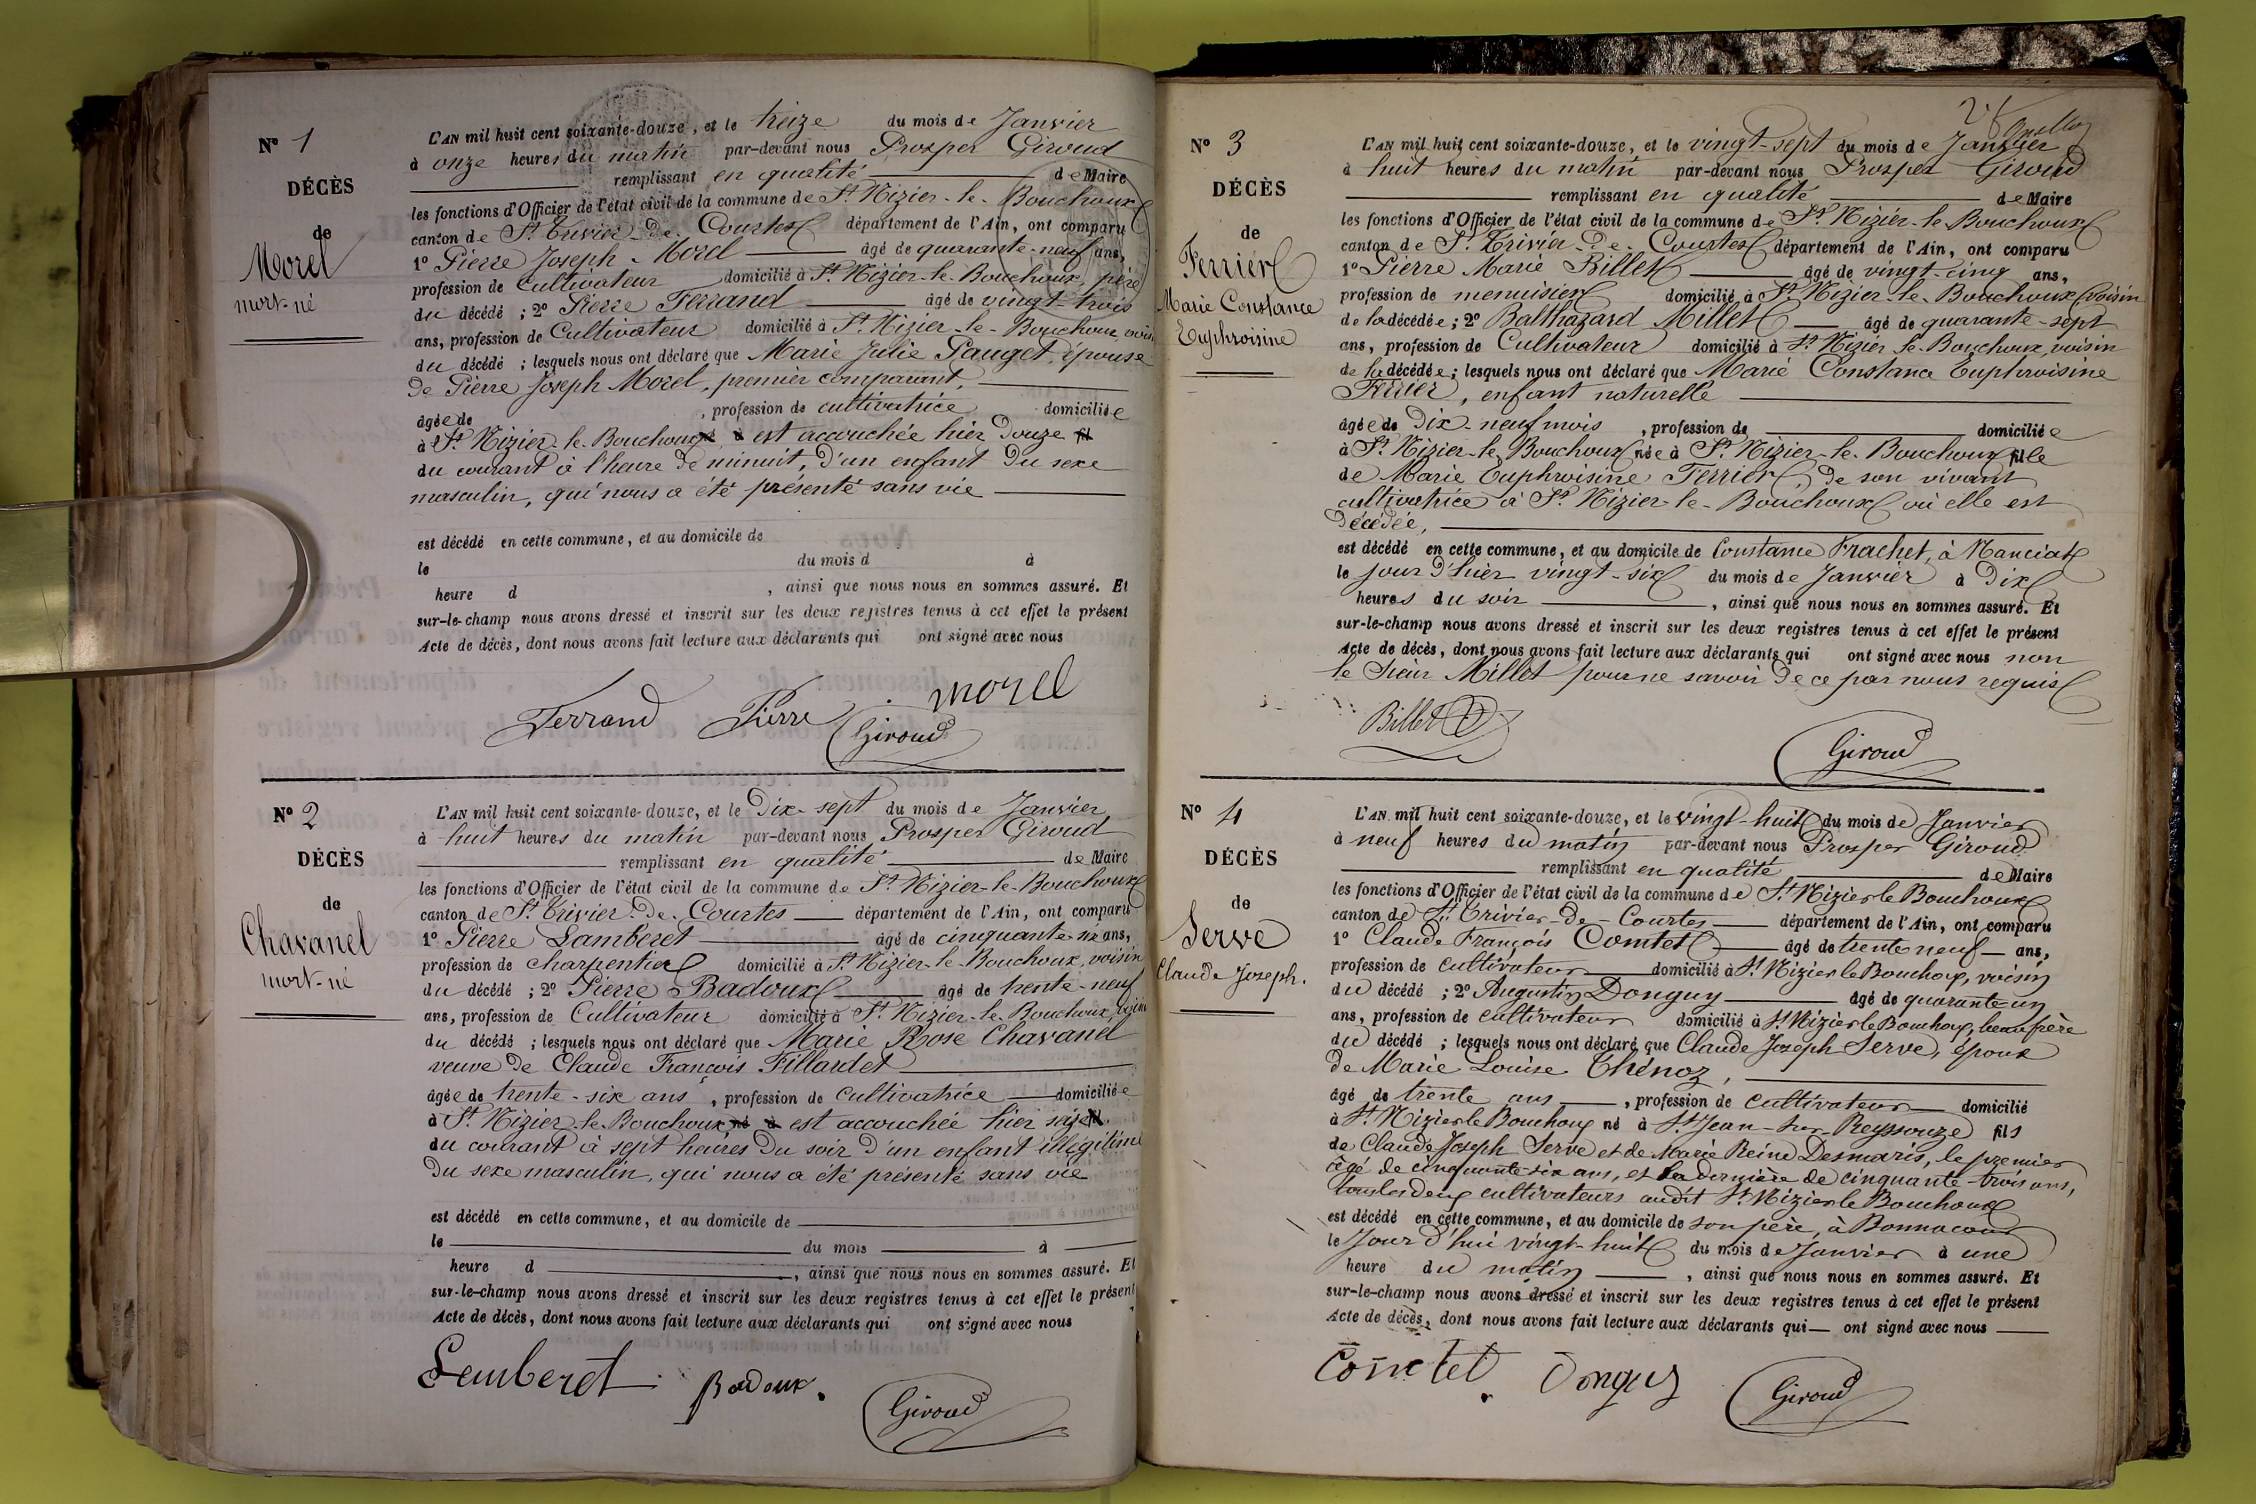 N° 1
DÉCÈS
de
Morel
mort-né
L'AN mil huit cent soixante-douze, et le treize du mois de Janvier
à onze heures du matin par-devant nous Prosper Giroud
remplissant en qualité de Maire
les fonctions d'Officier de l'état civil de la commune de St Nizier-le-Bouchoux
canton de St Trivier-de-Courtes département de l'Ain, ont comparu
1° Pierre Joseph Morel âgé de quarante-neuf ans,
profession de Cultivateur domicilié à St Nizier-le-Bouchoux, père
du décédé ; 2° Pierre Ferrand âgé de vingt-trois
ans, profession de Cultivateur domicilié à St Nizier-le-Bouchoux, voisin
du décédé ; lesquels nous ont déclaré que Marie Julie Pauget, épouse
de Pierre Joseph Morel, premier comparant,
âgée de , profession de cultivatrice domiciliée
à St Nizier-le-Bouchoux né à est accouchée hier douze fil
du courant à l'heure de minuit, d'un enfant du sexe
masculin, qui nous a été présenté sans vie
est décédé en cette commune, et au domicile de
le du mois d à
heure d , ainsi que nous nous en sommes assuré. Et
sur-le-champ nous avons dressé et inscrit sur les deux registres tenus à cet effet le présent
Acte de décès, dont nous avons fait lecture aux déclarants qui ont signé avec nous
morel
Ferrand Pierre
Giroud
N° 2
DÉCÈS
de
Chavanel
mort-né
L'AN mil huit cent soixante-douze, et le Dix-sept du mois de Janvier
à huit heures du matin par-devant nous Prosper Giroud
remplissant en qualité de Maire
les fonctions d'Officier de l'état civil de la commune de St Nizier-le-Bouchoux
canton de St Trivier-de-Courtes département de l'Ain, ont comparu
1° Pierre Lamberet âgé de cinquante-six ans,
profession de charpentier domicilié à St Nizier-le-Bouchoux, voisin
du décédé ; 2° Pierre Badoux âgé de trente-neuf
ans, profession de Cultivateur domicilié à St Nizier-le-Bouchoux, voisin
du décédé ; lesquels nous ont déclaré que Marie Rose Chavanel
veuve de Claude François Fillardet
âgée de trente-six ans , profession de cultivatrice domiciliée
à St Nizier-le-Bouchoux né à est accouchée hier seize
du courant à sept heures du soir d'un enfant illégitime
du sexe masculin, qui nous a été présenté sans vie
est décédé en cette commune, et au domicile de
le du mois à
heure d , ainsi que nous nous en sommes assuré. Et
sur-le-champ nous avons dressé et inscrit sur les deux registres tenus à cet effet le présent
Acte de décès, dont nous avons fait lecture aux déclarants qui ont signé avec nous
Lemberet Badoux.
Giroud
N° 3
DÉCÈS
de
Ferrier
Marie Constance
Euphroisine
L'AN mil huit cent soixante-douze, et le vingt-sept du mois de Janvier
à huit heures du matin par-devant nous Prosper Giroud
remplissant en qualité de Maire
les fonctions d'Officier de l'état civil de la commune de St Nizier-le-Bouchoux
canton de St Trivier-de-Courtes département de l'Ain, ont comparu
1° Pierre Marie Billet âgé de vingt-cinq ans,
profession de menuisier domicilié à St Nizier-le-Bouchoux, voisin
de la décédée ; 2° Balthazard Millet âgé de quarante-sept
ans, profession de Cultivateur domicilié à St Nizier-le-Bouchoux, voisin
de la décédée ; lesquels nous ont déclaré que Marie Constance Euphroisine
Ferrier, enfant naturelle
âgée de Dix-neuf mois , profession de domiciliée
à St Nizier-le-Bouchoux née à St Nizier-le-Bouchoux fille
de Marie Euphroisine Ferrier, de son vivant
cultivatrice à St Nizier-le-Bouchoux où elle est
décédée,
est décédé en cette commune, et au domicile de Constance Frachet, à Manciat
le jour d'hier vingt-six du mois de Janvier à Dix
heures du soir , ainsi que nous nous en sommes assuré. Et
sur-le-champ nous avons dressé et inscrit sur les deux registres tenus à cet effet le présent
Acte de décès, dont nous avons fait lecture aux déclarants qui ont signé avec nous non
le Sieur Millet pour ne savoir de ce par nous requis
Billet
Giroud
N° 4
DÉCÈS
de
Serve
Claude Joseph.
L'AN mil huit cent soixante-douze, et le vingt-huit du mois de Janvier
à neuf heures du matin par-devant nous Prosper Giroud
remplissant en qualité de Maire
les fonctions d'Officier de l'état civil de la commune de St Nizier le Bouchoux
canton de St Trivier-de-Courtes département de l'Ain, ont comparu
1° Claude François Comtet âgé de trente neuf ans,
profession de cultivateur domicilié à St Nizier le Bouchoux, voisin
du décédé ; 2° Augustin Donguy âgé de quarante-un
ans, profession de cultivateur domicilié à St Nizier le Bouchoux, beau frère
du décédé ; lesquels nous ont déclaré que Claude Joseph Serve, époux
de Marie Louise Thénoz,
âgé de trente ans , profession de cultivateur domicilié
à St Nizier le Bouchoux né à St Jean-sur-Reyssouze fils
de Claude Joseph Serve et de Marie Reine Desmaris, le premier
âgé de cinquante six ans, et la dernière de cinquante-trois ans,
tous les deux cultivateurs audit St Nizier le Bouchoux
est décédé en cette commune, et au domicile de son père, à Bonnacour
le Jour d'hui vingt-huit du mois de Janvier à une
heure du matin , ainsi que nous nous en sommes assuré. Et
sur-le-champ nous avons dressé et inscrit sur les deux registres tenus à cet effet le présent
Acte de décès, dont nous avons fait lecture aux déclarants qui ont signé avec nous
Comtet Donguy
Giroud